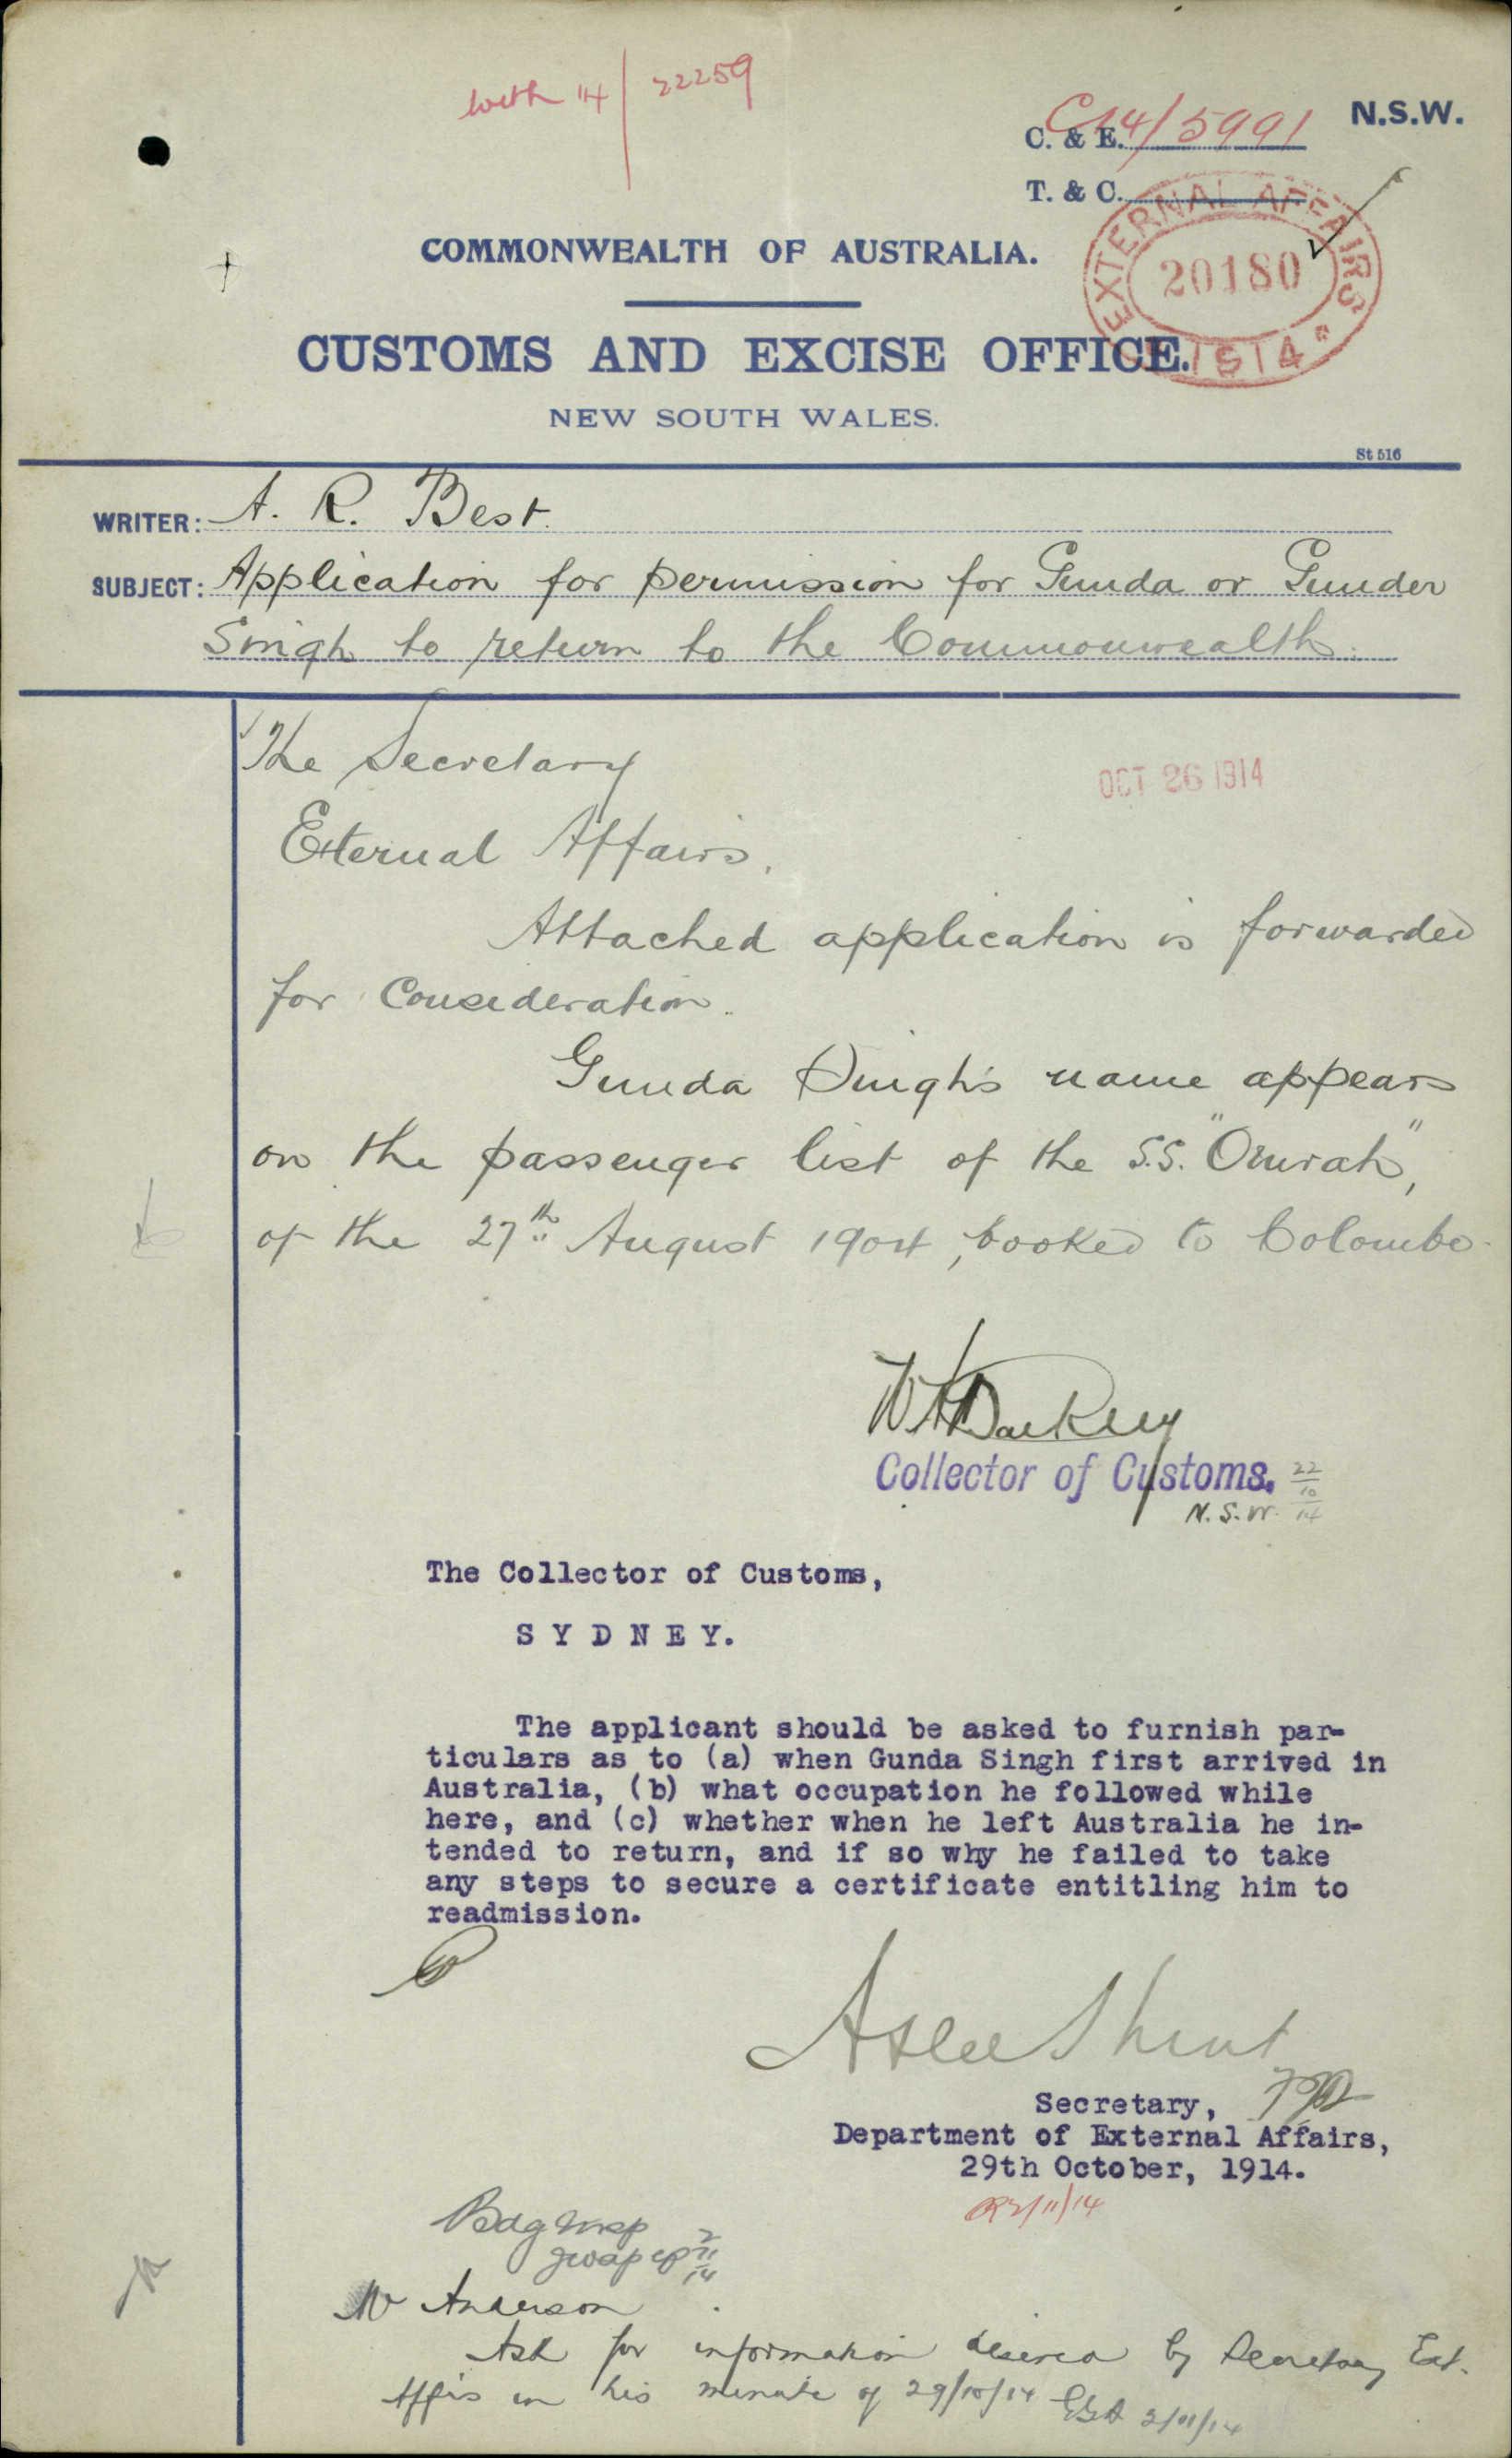 with 14/22259
N.S.W.
C. & E. C14/5991
T. & C.
EXTERNAL AFFAIRS
20180
1914
COMMONWEALTH OF AUSTRALIA.
CUSTOMS AND EXCISE OFFICE.
NEW SOUTH WALES.
St 516
WRITER: A. R. Best.
SUBJECT: Application for permission for Gunda or Gunder
Singh to return to the Commonwealth.
The Secretary
OCT 26 1914
External Affairs.
Attached application is forwarded
for consideration.
Gunda Singh's name appears
on the passenger list of the S.S. "Omrah",
of the 27th August 1904, booked to Colombo.
Collector of Customs. 22/10/14
N.S.W.
The Collector of Customs,
SYDNEY.
The applicant should be asked to furnish par-
ticulars as to (a) when Gunda Singh first arrived in
Australia, (b) what occupation he followed while
here, and (c) whether when he left Australia he in-
tended to return, and if so why he failed to take
any steps to secure a certificate entitling him to
readmission.
Atlee Hunt
Secretary,
Department of External Affairs,
29th October, 1914.
2/11/14
Bdg Insp
2/11/14
Mr Anderson
Ask for information desired by Secretary Ext.
Affrs in his minute of 29/10/14 2/11/14